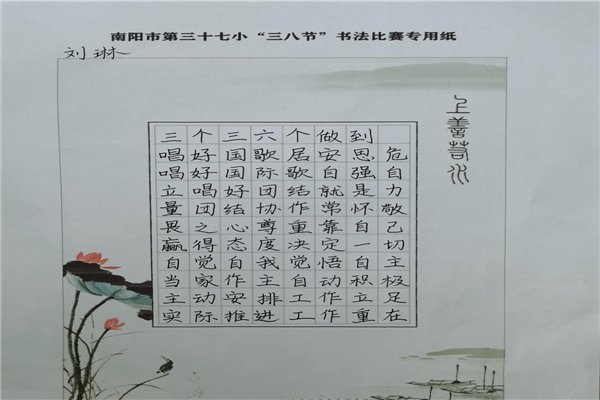 南阳市第三十七小“三八节”书法比赛专用纸
刘琳
上善若水
三个三六个做到
唱好国歌居安思危
唱好国际歌自强自
立唱好团结就是力
量团结协作常怀敬
畏之心尊重靠自己
赢得态度决定一切
自觉自我觉悟自主
当家作主自动积极
主动安排工作立足
实际推进工作重在